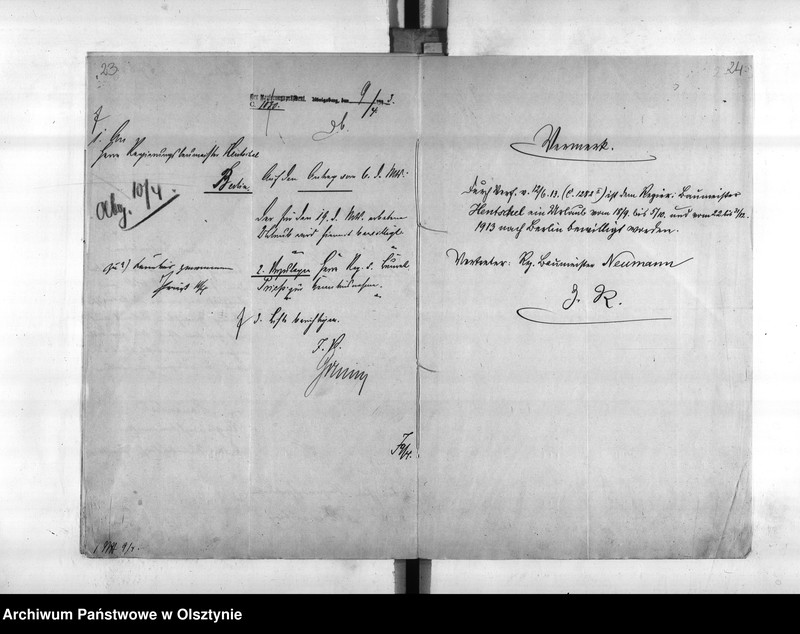 23
Der Regierungspräsident. Königsberg, den 9
/4
1.
Herrn Regierungsbaumeister Hentschel
Berlin.
Abg. 10/4.
Auf den Antrag vom 6. d. Mts.
Der für den 19. d. Mts. erbetene
Urlaub wird hiermit bewilligt
2. Herrn Reg. d.
zur Kenntnisnahme.
zu 2) Kenntnis genommen
3. Liste berichtigen.
J. V.
24.
Vermerk.
Durch Verf. v. 12/6.13. (C. 1282 II) ist dem Regier. Baumeister
Hentschel ein Urlaub vom 18/9. bis 5/10. und vom 22. bis
1913 nach Berlin bewilligt worden.
Vertreter: Rg. Baumeister Neumann
Z. K.
Archiwum Państwowe w Olsztynie